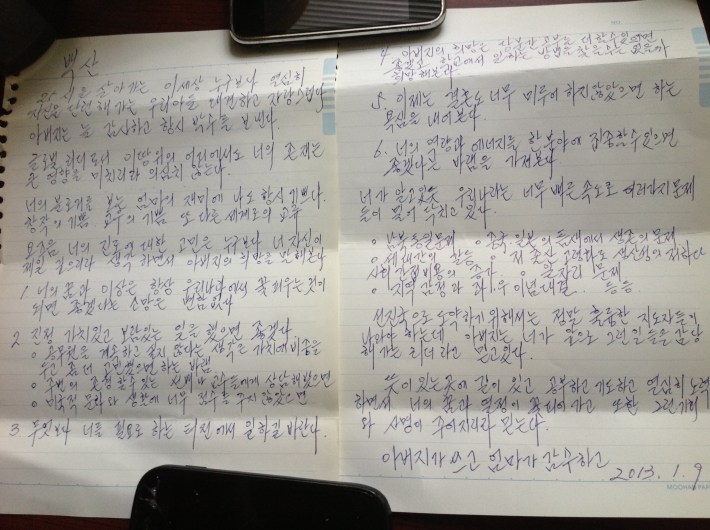 백산
꿈을 이루 살아가는 이세상 누구보다 열심히
자신을 단련해 가는 우리아들 대견하고 자랑스럽다
아버지는 늘 감사하고 항시 박수를 보낸다.
글로벌 리더로서 이땅위의 어디에서도 너의 존재는
큰 영향을 미치리라 의심치 않는다.
너의 블로그를 보는 엄마의 재미에 나도 항시 기쁘다.
창작의 기쁨 교수의 기쁨 또 다른 세계로의 교류
요즈음 너의 진로에 대한 고민은 누구보다 너 자신이
제일 깊으리라 생각하면서 아버지의 희망을 말해본다
1. 너의 꿈과 이상은 항상 우리나라에서 꽃피우는것이
되면 좋겠다는 소망은 변함없다
2. 진정 가치있고 보람있는 일을 했으면 좋겠다
o 공무원을 계속하고 싶지 않다는 생각은 가치에 비중을
두고 좀 더 고민했으면 하는 바램
o 주변의 존경할수 있는 선배나 교수들에게 상담해봤으면
o 미국적 문화와 생활에 너무 점수를 주지 않았으면
3. 무엇보다 너를 필요로 하는 터전에서 일하길 바란다.
4. 아버지의 희망은 상봉간 공부를 더 할수 있으면
좋겠고 학교에서 일하는 방법을 찾을수는 없을까
희망해본다
5. 이제는 결혼도 너무 미루어 하지 않았으면 하는
욕심을 내어본다.
6. 너의 역량과 에너지를 한 분야에 집중할수 있으면
좋겠다는 바램을 가져본다.
너가 알고있듯 우리나라는 너무 빠른 속도로 여러가지 문제
들이 밀어 닥치고 있다.
o 남북통일문제 o 중국. 일본의 틈새에서 생존의 문제
o 세대간의 갈등 o 저출산 고령화로 생산성이 저하되
사회간접비용의 증가 o 일자리 문제
o 지역 감정과 좌.우 이념대결. 등등
선진국으로 도약하기 위해서는 정말 훌륭한 지도자들이
나와야 하는데 아버지는 너가 앞으로 그런 일들을 감당
해가는 리더라고 믿고있다.
뜻이 있는 곳에 길이 있고 공부하고 기도하고 열심히 노력
하면서 너의 꿈과 열정이 꽃피어가고 또한 그런 기회
와 사명이 주어지리라 믿는다.
아버지가 쓰고 엄마가 감수하고
2013. 1. 9